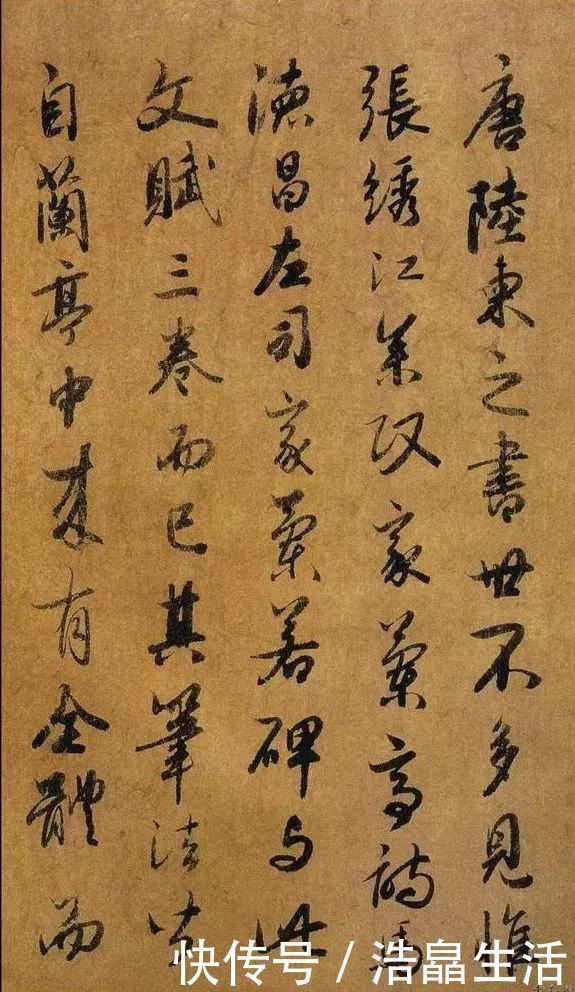 唐陸柬之書世不多見惟
張繡江叅政家蘭亭詩馬
德昌左司家蘭若碑与此
文賦三卷而已其筆法皆
自蘭亭中来有全體而
快传号／浩皛生活